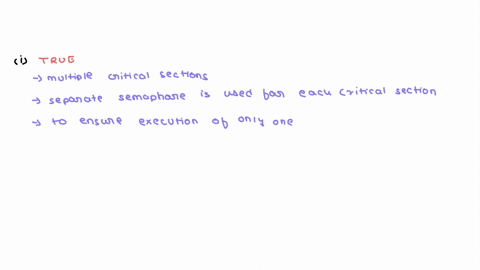 (i) TRUE
→ multiple critical sections
→ separate semaphare is used for each critical section
→ to ensure execution of only one